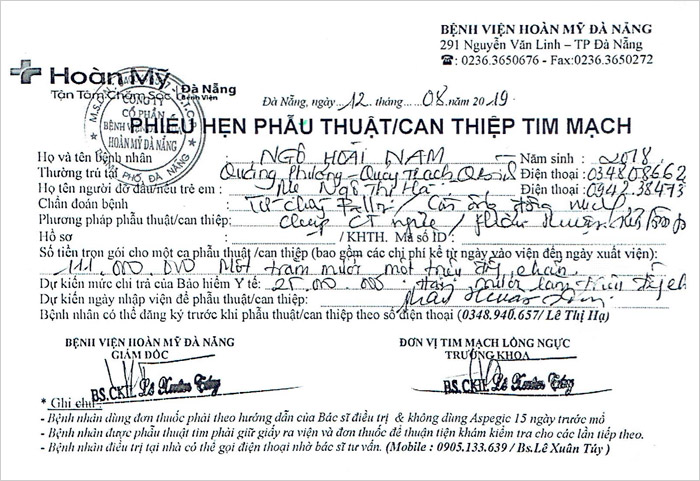 BỆNH VIỆN HOÀN MỸ ĐÀ NẴNG
291 Nguyễn Văn Linh – TP Đà Nẵng
☎: 0236.3650676 - Fax:0236.3650272
Hoàn Mỹ Đà Nẵng
Tận Tâm Chăm Sóc Bệnh Viện
CÔNG TY
CỔ PHẦN
BỆNH VIỆN
HOÀN MỸ ĐÀ NẴNG
Đà Nẵng, ngày 12 tháng 08 năm 2019.
PHIẾU HẸN PHẪU THUẬT/CAN THIỆP TIM MẠCH
Họ và tên bệnh nhân NGÔ HOÀI NAM Năm sinh 2018
Thường trú tại Quảng Phương - Quảng Trạch Điện thoại 034808662
Họ tên người đỡ đầu nếu trẻ em: Mẹ Ngô Thị Hà Điện thoại: 0942.38473
Chẩn đoán bệnh Tứ chứng
Phương pháp phẫu thuật/can thiệp: chụp CT ngực /
Hồ sơ / KHTH. Mã số ID:
Số tiền trọn gói cho một ca phẫu thuật /can thiệp (bao gồm các chi phí kể từ ngày vào viện đến ngày xuất viện):
111.000.000 Một trăm mười một triệu chẵn
Dự kiến mức chi trả của Bảo hiểm Y tế: 25.000.000 Hai mươi lăm triệu
Dự kiến ngày nhập viện để phẫu thuật/can thiệp:
Bệnh nhân có thể đăng ký trước khi phẫu thuật/can thiệp theo số điện thoại (0348.940.657/ Lê Thị Hạ)
BỆNH VIỆN HOÀN MỸ ĐÀ NẴNG ĐƠN VỊ TIM MẠCH LỒNG NGỰC
GIÁM ĐỐC TRƯỞNG KHOA
BS.CKII. Lê Xuân Túy BS.CKII. Lê Xuân Túy
* Ghi chú:
- Bệnh nhân dùng đơn thuốc phải theo hướng dẫn của Bác sĩ điều trị & không dùng Aspegic 15 ngày trước mổ
- Bệnh nhân được phẫu thuật tim phải giữ giấy ra viện và đơn thuốc để thuận tiện khám kiểm tra cho các lần tiếp theo.
- Bệnh nhân điều trị tại nhà có thể gọi điện thoại nhờ bác sĩ tư vấn. (Mobile : 0905.133.639 / Bs.Lê Xuân Túy )